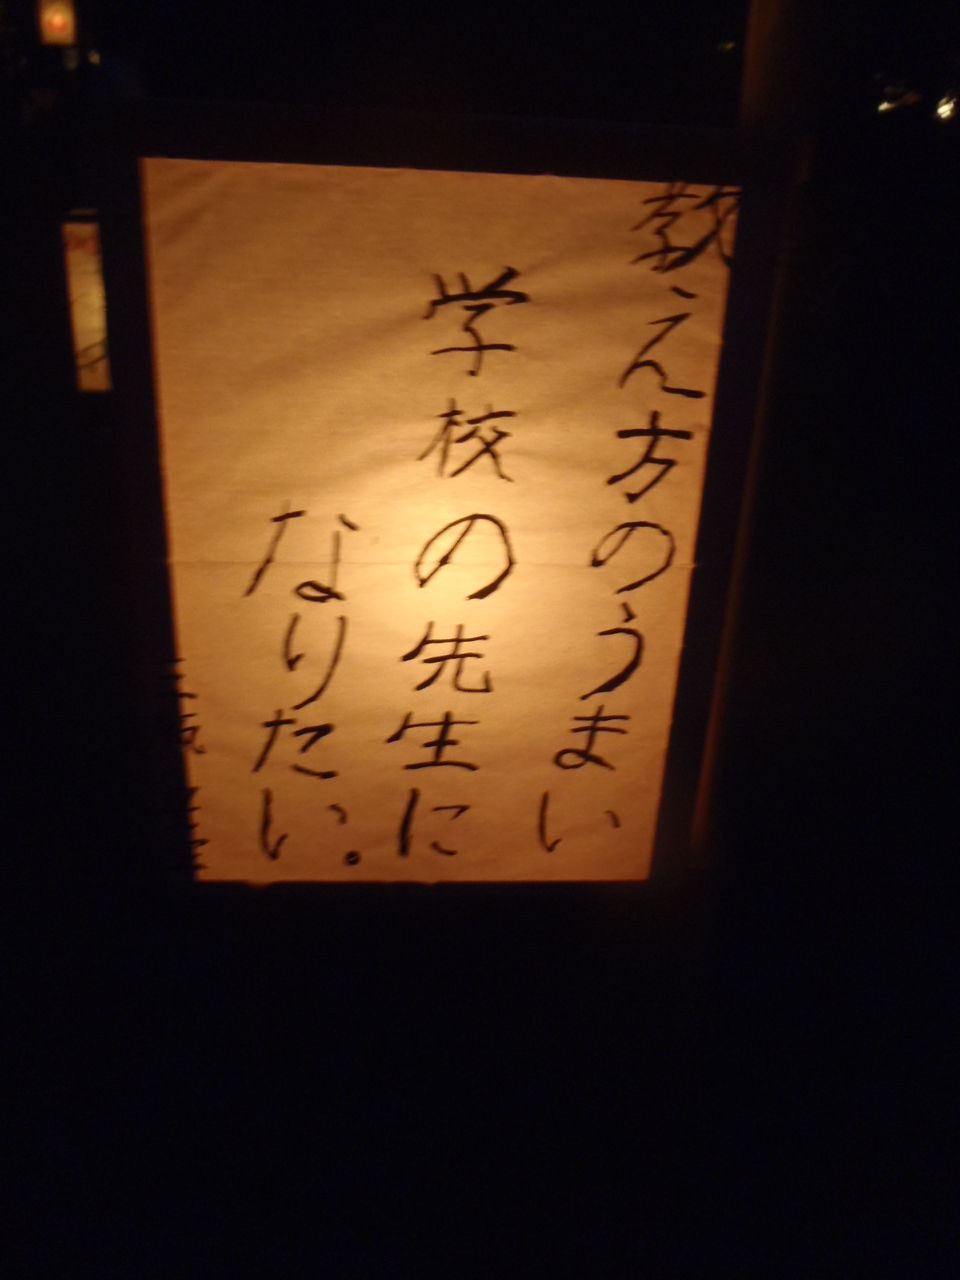 教え方のうまい
学校の先生に
なりたい。